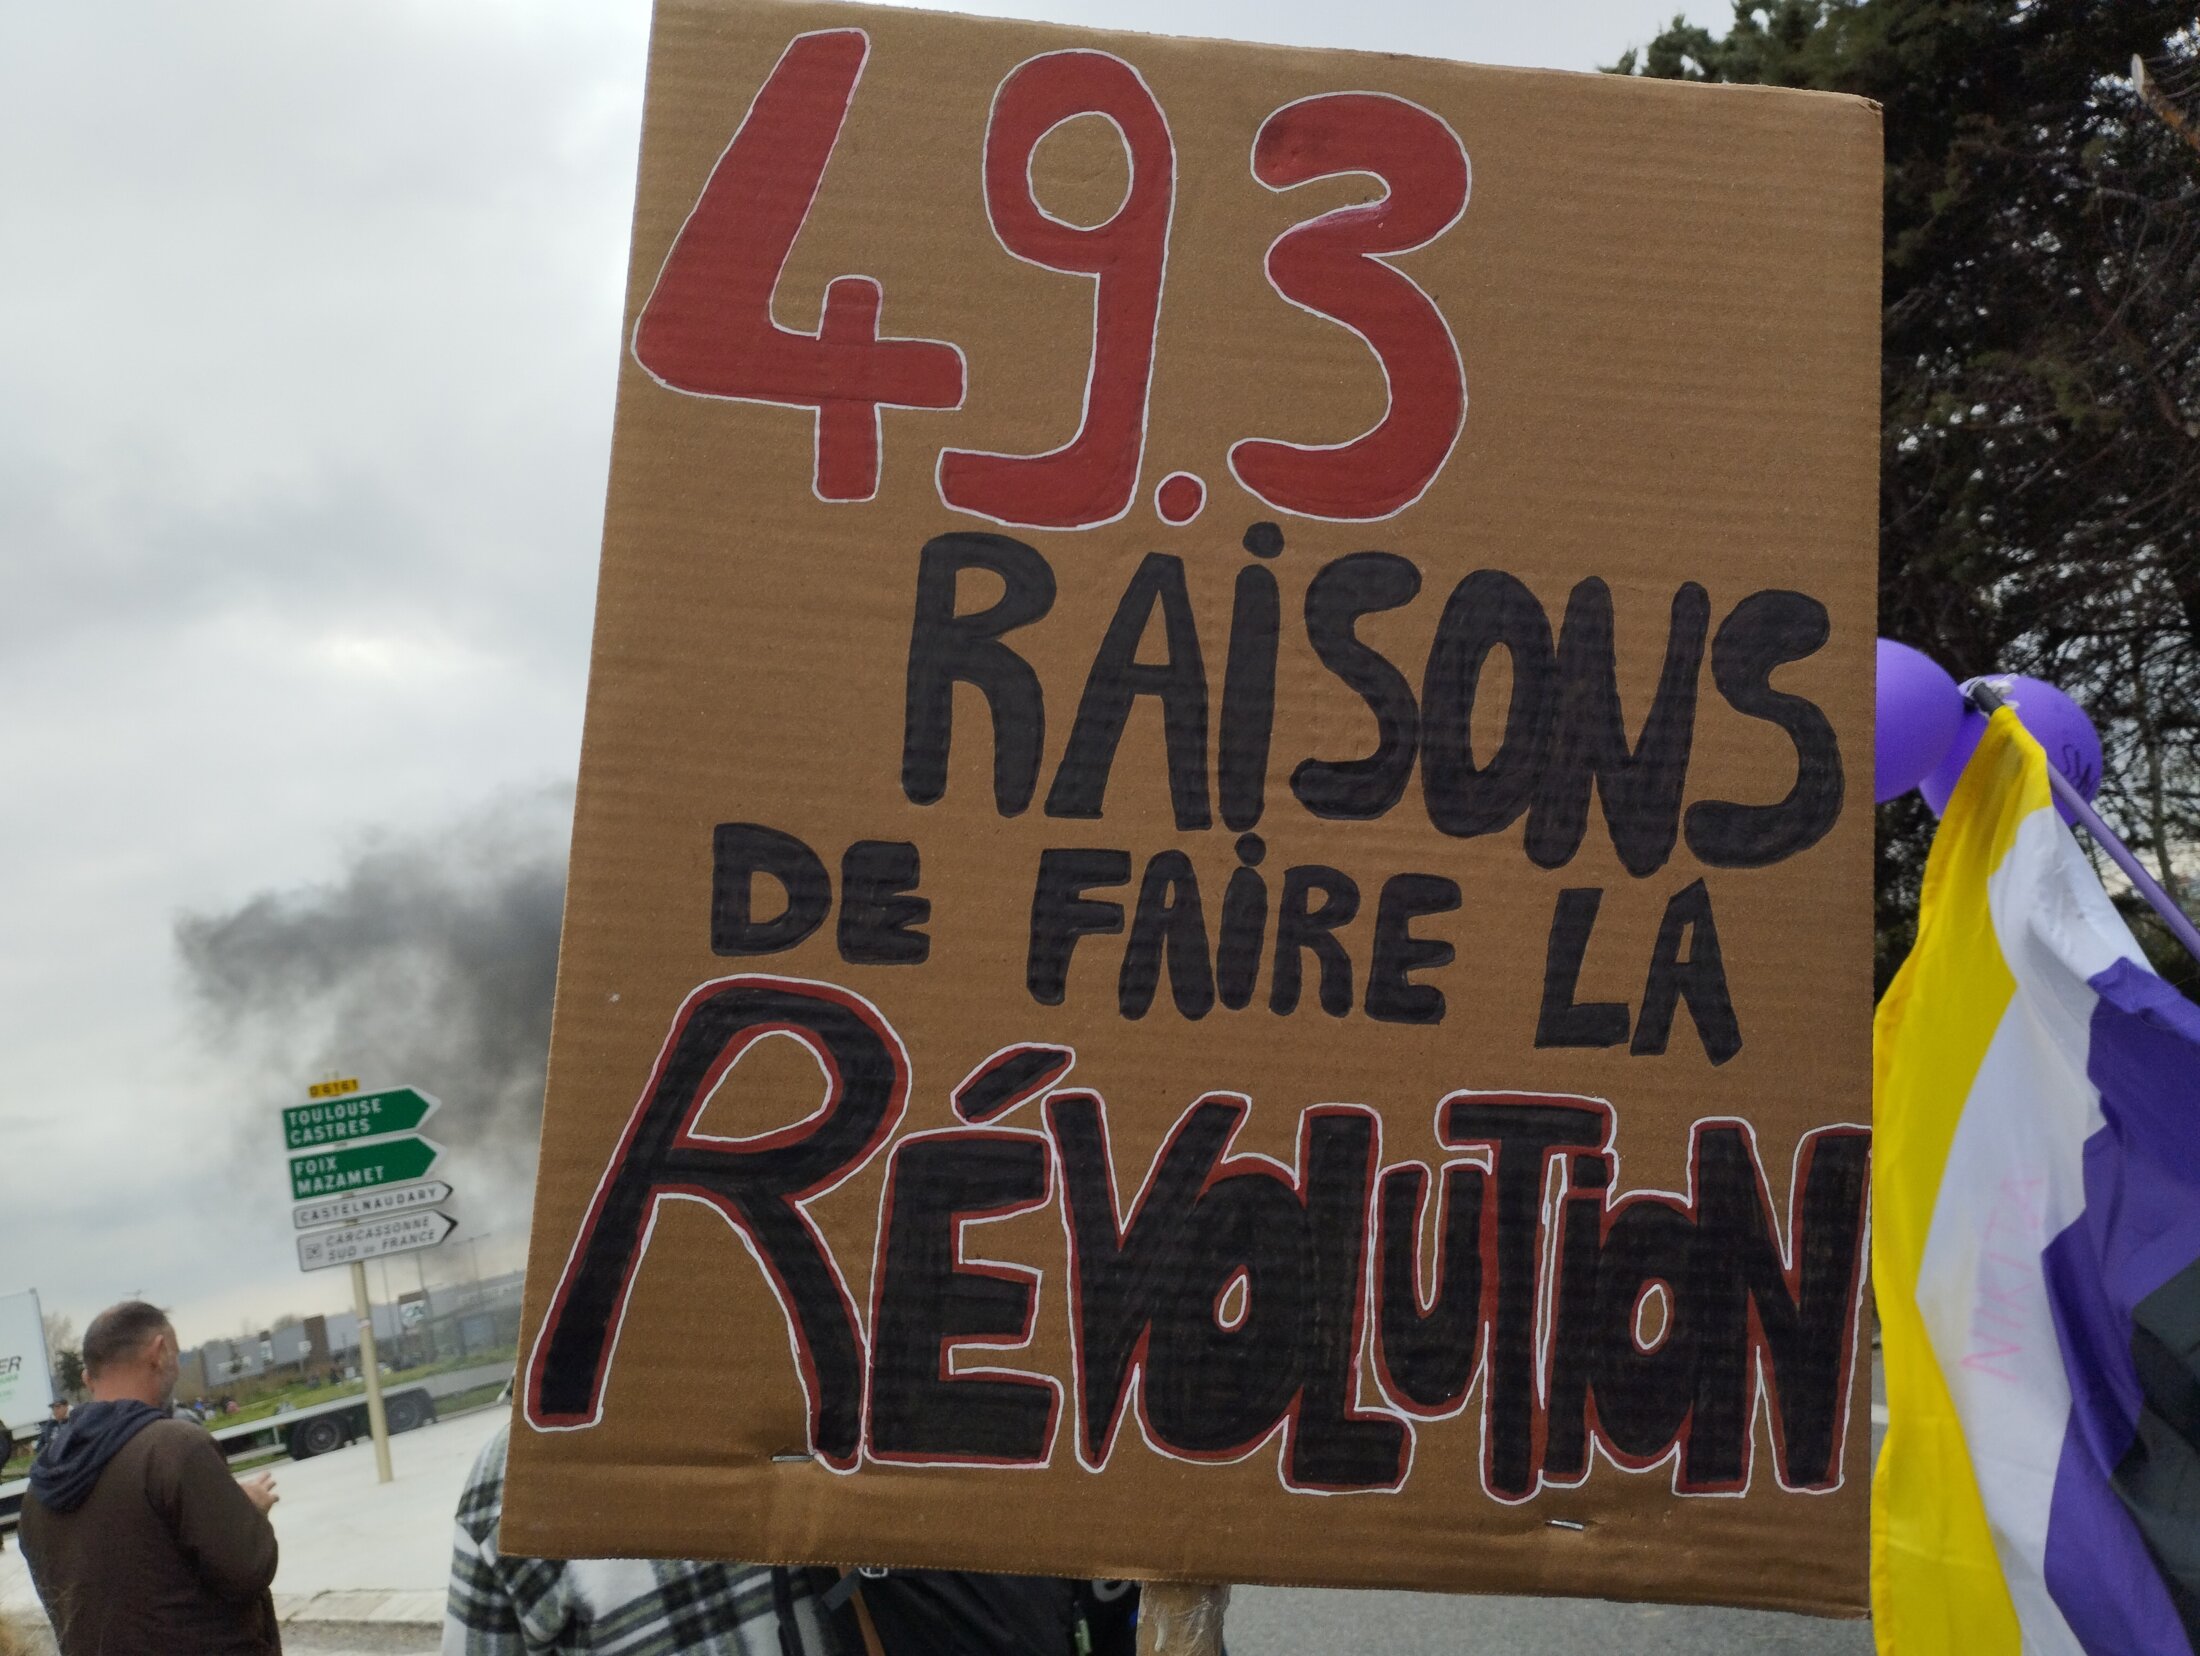 49.3
RAiSONS
DE FAiRE LA
RÉVOLUTiON
D 6161
TOULOUSE
CASTRES
FOIX
MAZAMET
CASTELNAUDARY
CARCASSONNE
SUD DE FRANCE
ER